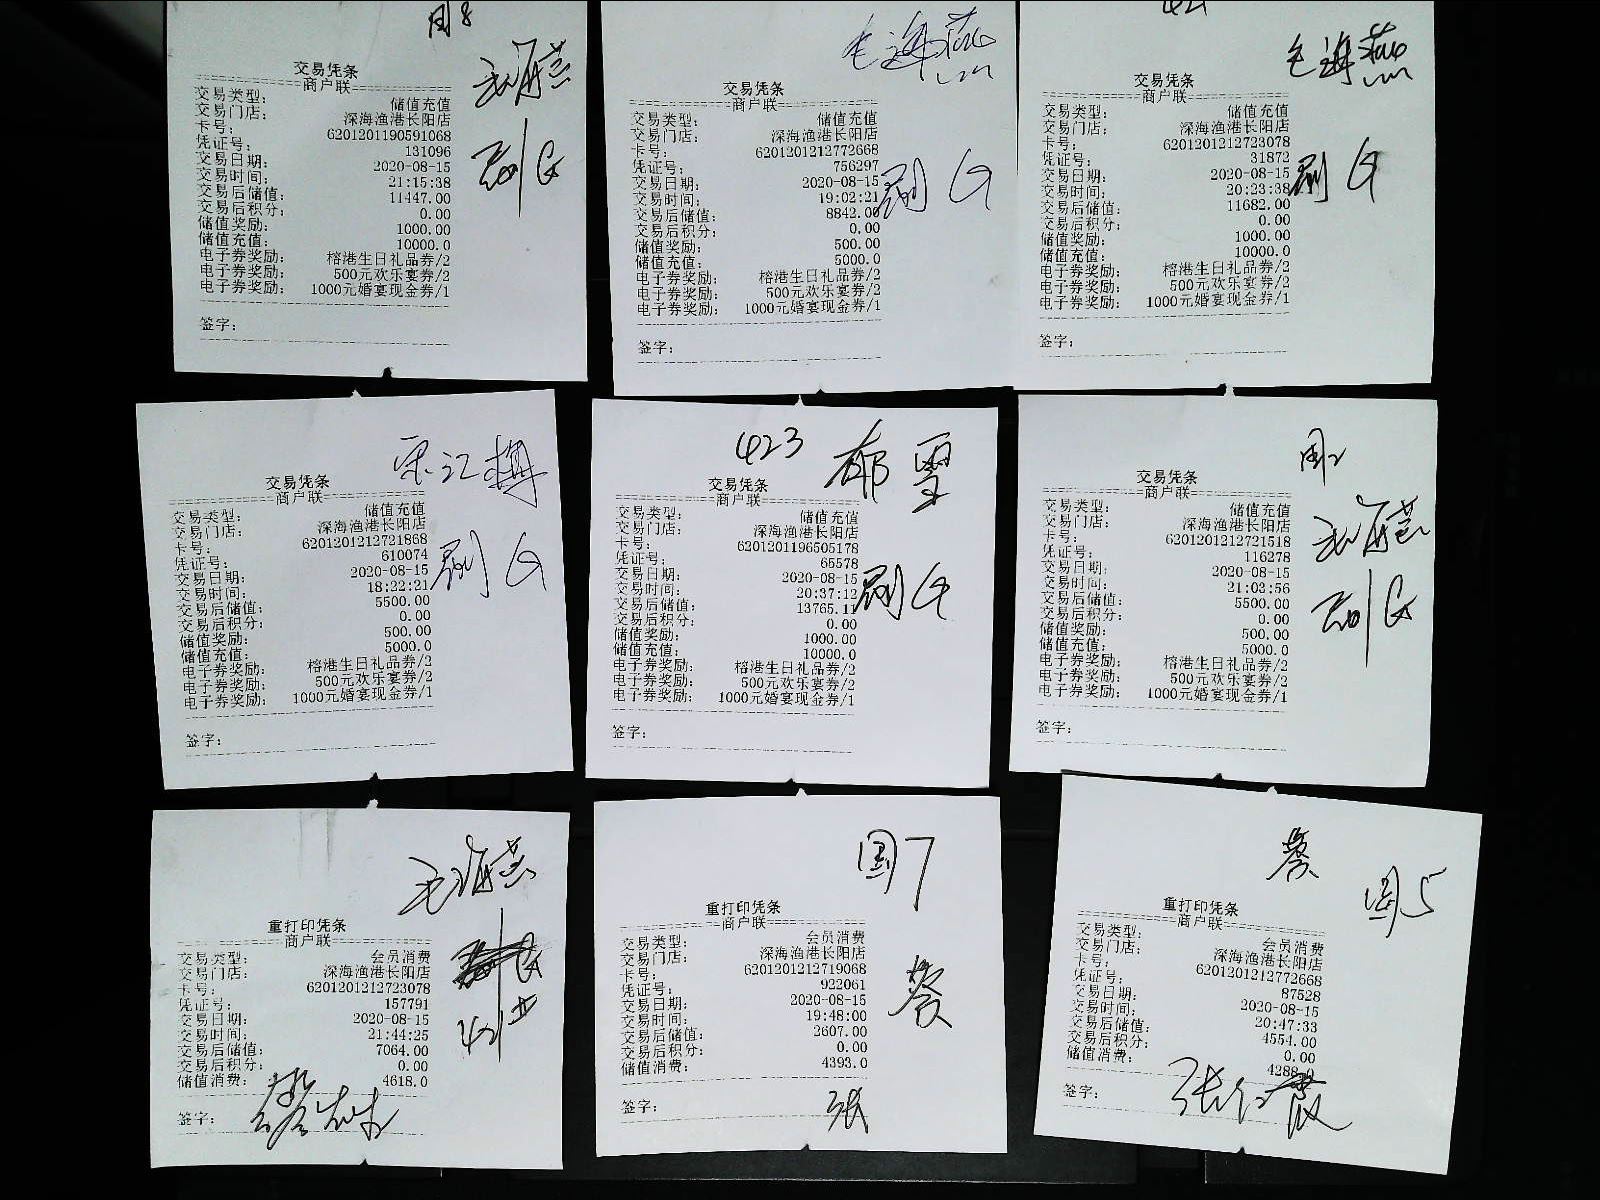 周8
毛海燕
刷G
交易凭条
商户联
交易类型: 储值充值
交易门店: 深海渔港长阳店
卡号: 6201201190591068
凭证号: 131096
交易日期: 2020-08-15
交易时间: 21:15:38
交易后储值: 11447.00
交易后积分: 0.00
储值奖励: 1000.00
储值充值: 10000.0
电子券奖励: 榕港生日礼品券/2
电子券奖励: 500元欢乐宴券/2
电子券奖励: 1000元婚宴现金券/1
签字:
毛海燕
刷G
交易凭条
商户联
交易类型: 储值充值
交易门店: 深海渔港长阳店
卡号: 6201201212772668
凭证号: 756297
交易日期: 2020-08-15
交易时间: 19:02:21
交易后储值: 8842.00
交易后积分: 0.00
储值奖励: 500.00
储值充值: 5000.0
电子券奖励: 榕港生日礼品券/2
电子券奖励: 500元欢乐宴券/2
电子券奖励: 1000元婚宴现金券/1
签字:
421
毛海燕
刷G
交易凭条
商户联
交易类型: 储值充值
交易门店: 深海渔港长阳店
卡号: 6201201212723078
凭证号: 31872
交易日期: 2020-08-15
交易时间: 20:23:38
交易后储值: 11682.00
交易后积分: 0.00
储值奖励: 1000.00
储值充值: 10000.0
电子券奖励: 榕港生日礼品券/2
电子券奖励: 500元欢乐宴券/2
电子券奖励: 1000元婚宴现金券/1
签字:
刷G
交易凭条
商户联
交易类型: 储值充值
交易门店: 深海渔港长阳店
卡号: 6201201212721868
凭证号: 610074
交易日期: 2020-08-15
交易时间: 18:22:21
交易后储值: 5500.00
交易后积分: 0.00
储值奖励: 500.00
储值充值: 5000.0
电子券奖励: 榕港生日礼品券/2
电子券奖励: 500元欢乐宴券/2
电子券奖励: 1000元婚宴现金券/1
签字:
423
刷G
交易凭条
商户联
交易类型: 储值充值
交易门店: 深海渔港长阳店
卡号: 6201201196505178
凭证号: 65578
交易日期: 2020-08-15
交易时间: 20:37:12
交易后储值: 13765.11
交易后积分: 0.00
储值奖励: 1000.00
储值充值: 10000.0
电子券奖励: 榕港生日礼品券/2
电子券奖励: 500元欢乐宴券/2
电子券奖励: 1000元婚宴现金券/1
签字:
周2
毛海燕
刷G
交易凭条
商户联
交易类型: 储值充值
交易门店: 深海渔港长阳店
卡号: 6201201212721518
凭证号: 116278
交易日期: 2020-08-15
交易时间: 21:03:56
交易后储值: 5500.00
交易后积分: 0.00
储值奖励: 500.00
储值充值: 5000.0
电子券奖励: 榕港生日礼品券/2
电子券奖励: 500元欢乐宴券/2
电子券奖励: 1000元婚宴现金券/1
签字:
毛海燕
重打印凭条
商户联
交易类型: 会员消费
交易门店: 深海渔港长阳店
卡号: 6201201212723078
凭证号: 157791
交易日期: 2020-08-15
交易时间: 21:44:25
交易后储值: 7064.00
交易后积分: 0.00
储值消费: 4618.0
签字:
国7
重打印凭条
商户联
交易类型: 会员消费
交易门店: 深海渔港长阳店
卡号: 6201201212719068
凭证号: 922061
交易日期: 2020-08-15
交易时间: 19:48:00
交易后储值: 2607.00
交易后积分: 0.00
储值消费: 4393.0
签字: 张
国5
重打印凭条
商户联
交易类型: 会员消费
交易门店: 深海渔港长阳店
卡号: 6201201212772668
凭证号: 87528
交易日期: 2020-08-15
交易时间: 20:47:33
交易后储值: 4554.00
交易后积分: 0.00
储值消费: 4288.0
签字: